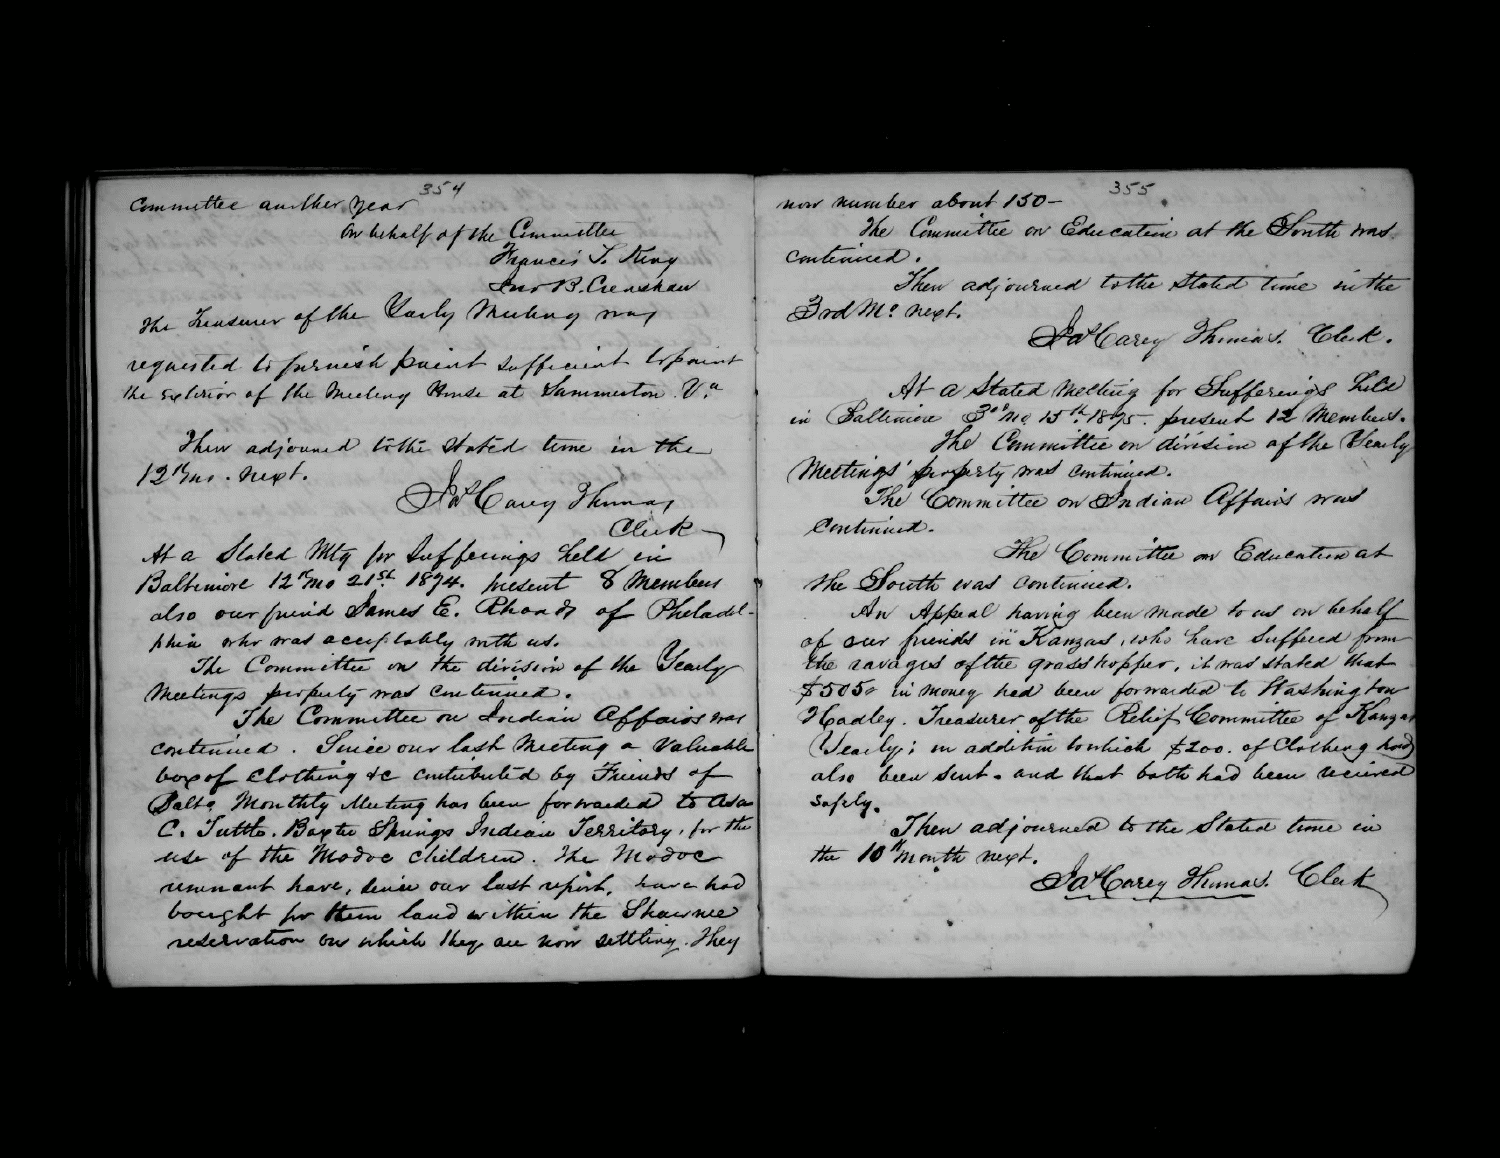 354
Committee another year
On behalf of the Committee
Francis T. King
Jno B. Crenshaw
The Treasurer of the Yearly Meeting was
requested to furnish paint sufficient to paint
the exterior of the Meeting House at Summerton Va
Then adjourned to the stated time in the
12th mo. next.
Jas Carey Thomas
Clerk
At a Stated Mtg for Sufferings held in
Baltimore 12th mo 21st 1874. present 8 Members
also our friend James E. Rhoads of Philadel-
phia who was acceptably with us.
The Committee on the division of the Yearly
Meetings property was continued.
The Committee on Indian Affairs was
continued. Since our last Meeting a valuable
box of clothing &c contributed by Friends of
Balto. Monthly Meeting has been forwarded to Asa
C. Tuttle. Baxter Springs Indian Territory, for the
use of the Modoc children. The Modoc
remnant have, since our last report, have had
bought for them land within the Shawnee
reservation on which they are now settling. They
355
now number about 150-
The Committee on Education at the South was
continued.
Then adjourned to the stated time in the
3rd Mo. next.
Jas Carey Thomas. Clerk.
At a Stated Meeting for Sufferings held
in Baltimore 3rd mo 15th 1875. present 12 Members.
The Committee on division of the Yearly
Meetings' property was continued.
The Committee on Indian Affairs was
continued.
The Committee on Education at
the South was continued.
An Appeal having been made to us on behalf
of our friends in Kanzas, who have suffered from
the ravages of the grasshopper, it was stated that
$505- in money had been forwarded to Washington
Hadley. Treasurer of the Relief Committee of Kanzas
Yearly; in addition to which $200. of Clothing had
also been sent. and that both had been received
safely.
Then adjourned to the Stated time in
the 10th month next.
Jas Carey Thomas. Clerk